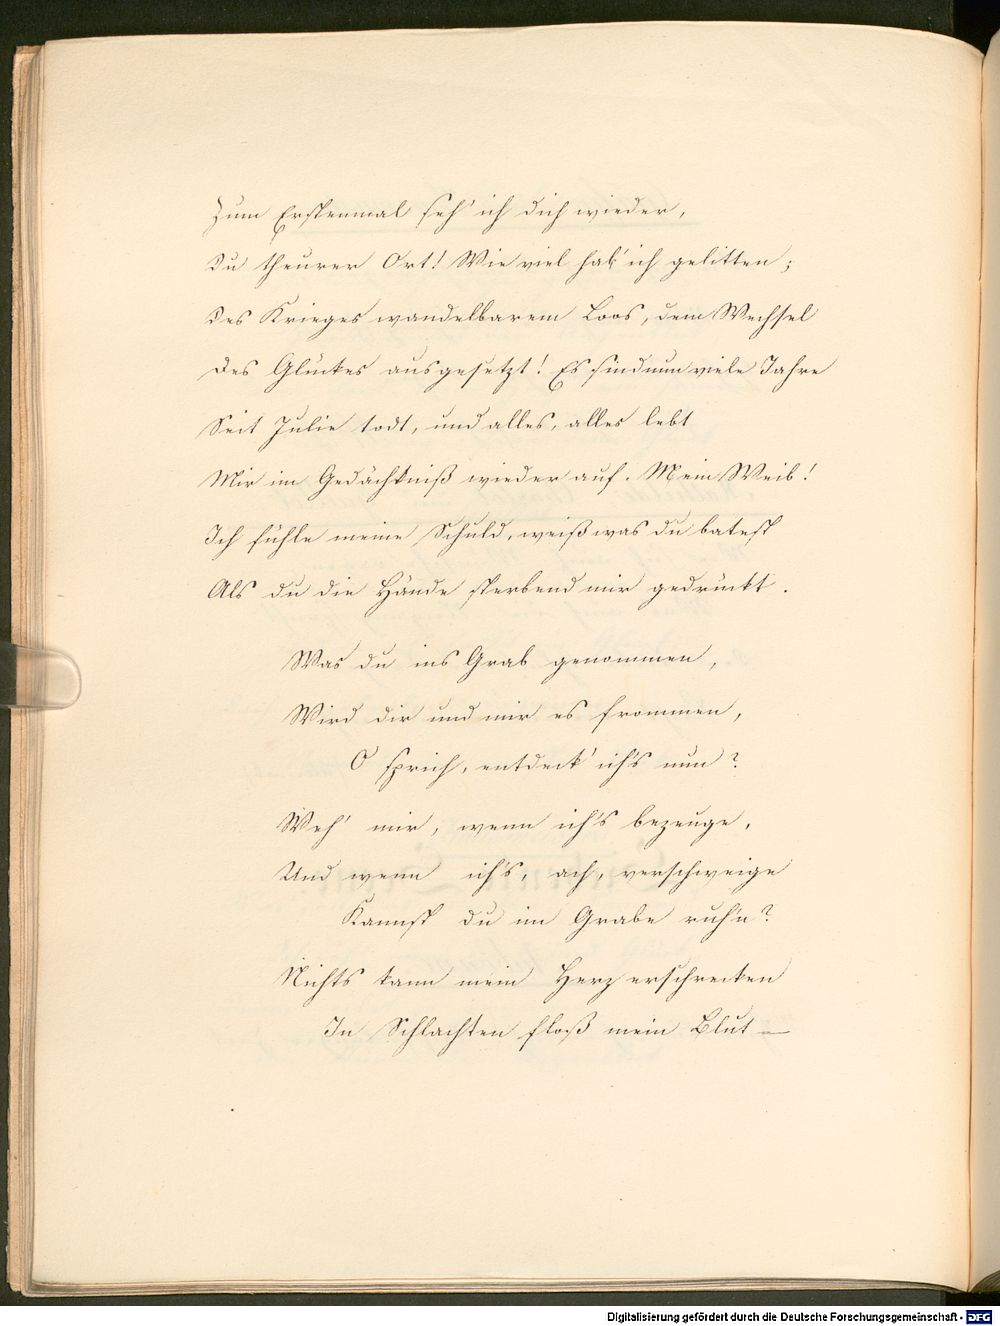 Zum Erstenmal seh' ich dich wieder,
Du theurer Ort! Wie viel hab' ich gelitten;
Des Krieges wandelbarem Loos, dem Wechsel
Des Glückes ausgesetzt! Es sind nun viele Jahre
Seit Julie todt, und alles, alles lebt
Mir im Gedächtniß wieder auf. Mein Weib!
Ich fühle meine Schuld, weiß was du batest
Als du die Hände sterbend mir gedrückt.
Was du ins Grab genommen,
Wird dir und mir es frommen,
O sprich, entdeck' ich's nun?
Weh' mir, wenn ich's bezeuge,
Und wenn ich's, ach, verschweige
Kannst du im Grabe ruh'n?
Nichts kann mein Herz erschrecken
In Schlachten floß mein Blut —
Digitalisierung gefördert durch die Deutsche Forschungsgemeinschaft - DFG